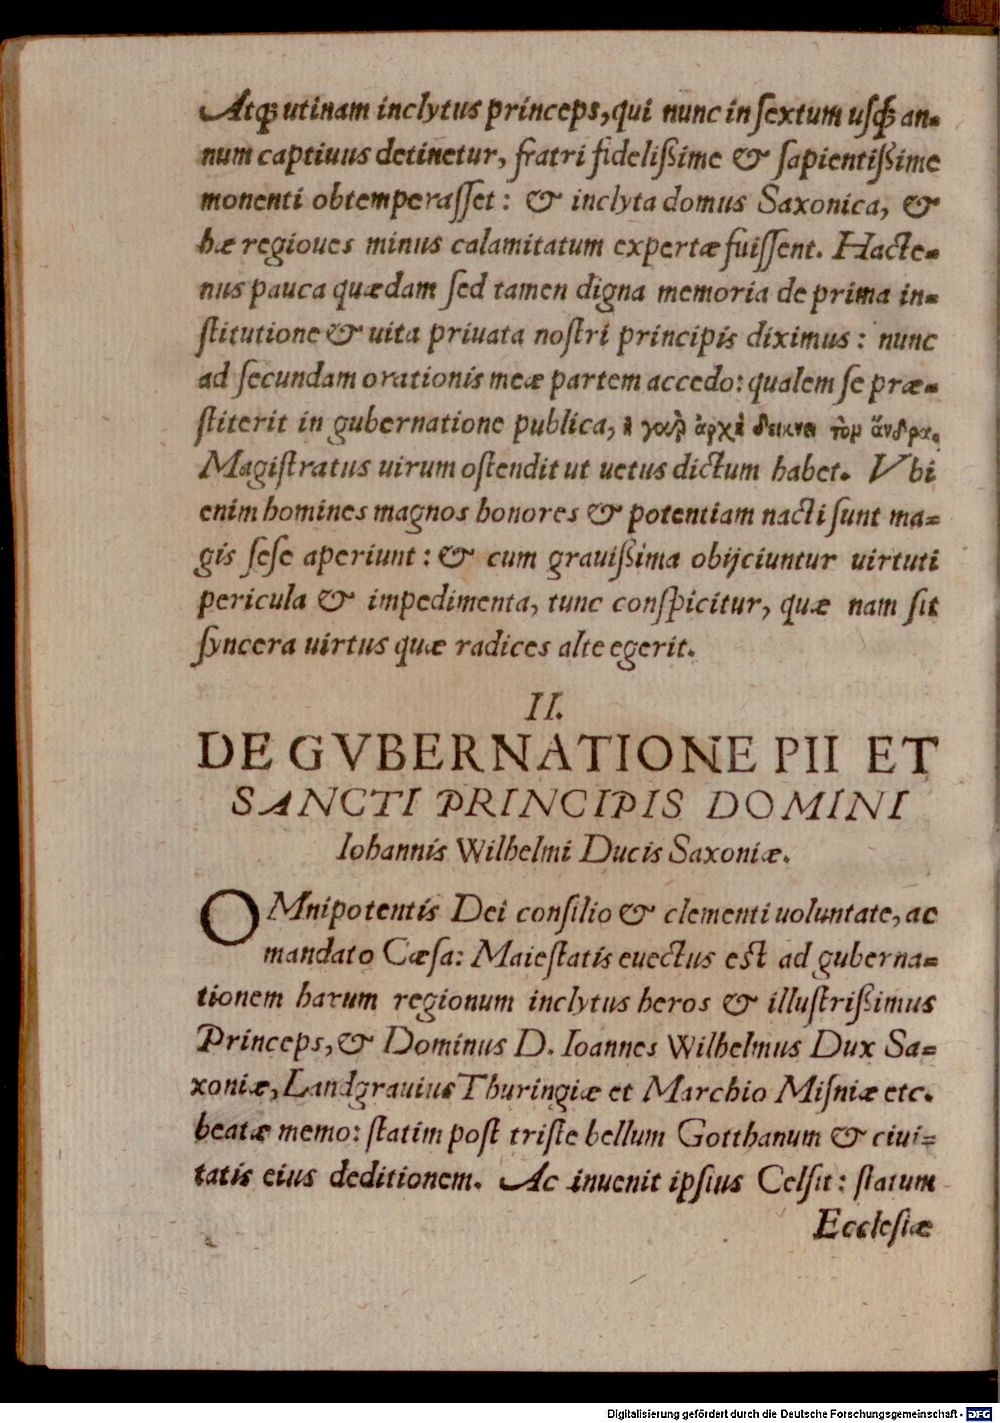 Atq́; utinam inclytus princeps, qui nunc in ſextum uſq́; an-
num captiuus detinetur, fratri fideliſsime & ſapientiſsime
monenti obtemperaſſet: & inclyta domus Saxonica, &
hæ regioues minus calamitatum expertæ fuiſſent. Hacte-
nus pauca quædam ſed tamen digna memoria de prima in-
ſtitutione & uita priuata noſtri principis diximus: nunc
ad ſecundam orationis meæ partem accedo: qualem ſe præ-
ſtiterit in gubernatione publica, ἡ γαρ ἀρχὴ δεικνει τὸμ ἄνδρα.
Magiſtratus uirum oſtendit ut uetus dictum habet. Vbi
enim homines magnos honores & potentiam nacti ſunt ma-
gis ſeſe aperiunt: & cum grauiſsima obijciuntur uirtuti
pericula & impedimenta, tunc conſpicitur, quæ nam ſit
ſyncera uirtus quæ radices alte egerit.
II.
DE GVBERNATIONE PII ET
SANCTI PRINCIPIS DOMINI
Iohannis Wilhelmi Ducis Saxoniæ.
OMnipotentis Dei conſilio & clementi uoluntate, ac
mandato Cæſa: Maieſtatis euectus eſt ad guberna-
tionem harum regionum inclytus heros & illuſtriſsimus
Princeps, & Dominus D. Ioannes Wilhelmus Dux Sa-
xoniæ, Landgrauius Thuringiæ et Marchio Miſniæ etc.
beatæ memo: ſtatim poſt triſte bellum Gotthanum & ciui-
tatis eius deditionem. Ac inuenit ipſius Celſit: ſtatum
Eccleſiæ
Digitalisierung gefördert durch die Deutsche Forschungsgemeinschaft - DFG